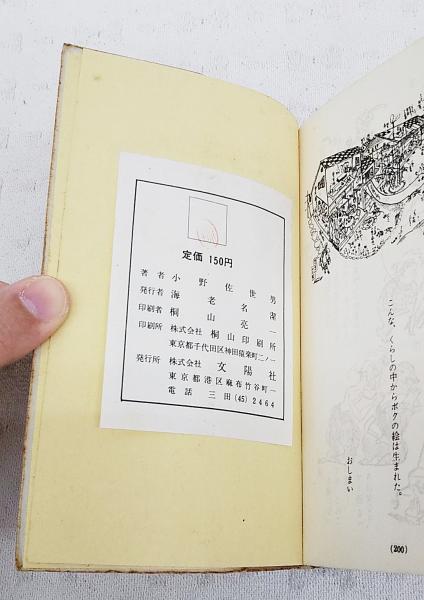 定価 150円
著者 小野佐世男
発行者 海老名潔
印刷者 桐山亮一
印刷所 株式会社 桐山印刷所
東京都千代田区神田猿楽町二ノ一
発行所 株式会社 文陽社
東京都港区麻布竹谷町一
電話 三田 (45) 2464
こんな、くらしの中からボクの絵は生まれた。
おしまい
(200)